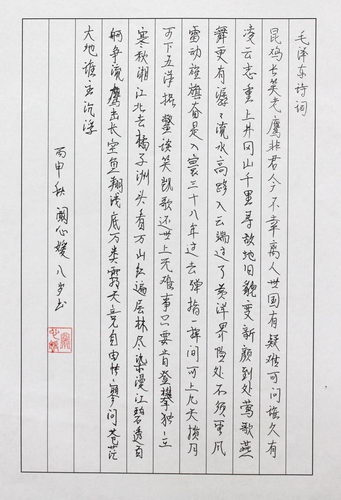 毛泽东诗词
昆鸡长笑老鹰非君今不幸离人世国有疑难可问谁久有
凌云志重上井冈山千里寻故地旧貌变新颜到处莺歌燕
舞更有潺々流水高路入云端过了黄洋界险处不须看风
雷动旌旗奋是人寰三十八年过去弹指一挥间可上九天揽月
可下五洋捉鳖谈笑凯歌还世上无难事只要肯登攀独立
寒秋湘江北去橘子洲头看万山红遍层林尽染漫江碧透百
舸争流鹰击长空鱼翔浅底万类霜天竞自由怅寥问苍茫
大地谁主沉浮
丙申秋 心媛八岁书